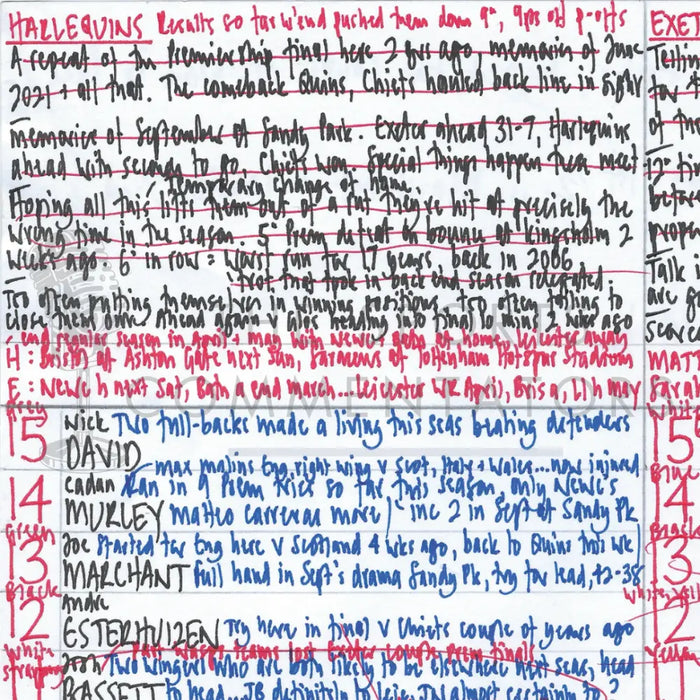 HARLEQUINS Results so far w'end pushed them down 9th, 9pts off p-offs
A repeat of the Premiership final here 2 yrs ago, memories of June
2021 + all that. The comeback Quins, Chiefs hauled back line in sight
Memories of September at Sandy Park. Exeter ahead 31-7, Harlequins
ahead with seconds to go, Chiefs won. Special things happen these meet
temporary change of name.
Hoping all this lifts them out of a rut they've hit at precisely the
wrong time in the season. 5th Prem defeat on bounce at Kingsholm 2
weeks ago. 6 in row = worst run for 17 years, back in 2006
that took in back end season relegated
Too often putting themselves in winning positions, too often failing to
close them out. ahead again at Glos heading into final 10 mins 2 wks ago
end regular season in April + may with Newc + at home, Leicester away
H: Bristol at Ashton Gate next Sun, Saracens at Tottenham Hotspur Stadium
E: Newc h next Sat, Bath a end march... Leicester h April, Bris a, LI h may
Green
15 Nick DAVID Two full-backs made a living this seas beating defenders
max malins Eng right wing v Scot, Italy + Wales... now injured
14 cadan MURLEY Ran in 9 Prem tries so far this season, only Newc's
Matteo Carreras more, inc 2 in Sept at Sandy Pk
Green
13 Joe MARCHANT Started for Eng here v Scotland 4 wks ago, back to Quins this wk
Full hand in Sept's drama Sandy Pk, try for lead, 42-38
Black
12 Andre ESTERHUIZEN Try here in final v Chiefs couple of years ago
Past teams lost Exeter couple Prem finals
White
strapping
Josh BASSETT Two wingers who are both likely to be elsewhere next seas, head
to head. JB definitely to Leic, JN almost certain to ?
EXET
Tellin
for
of the
12 tir
before
proper
Talk i
are
search
MATT
Sara
White
15
Blue
14
Black
13
White, Yell
12
Yellow
THE LORD
COMMENTATORS